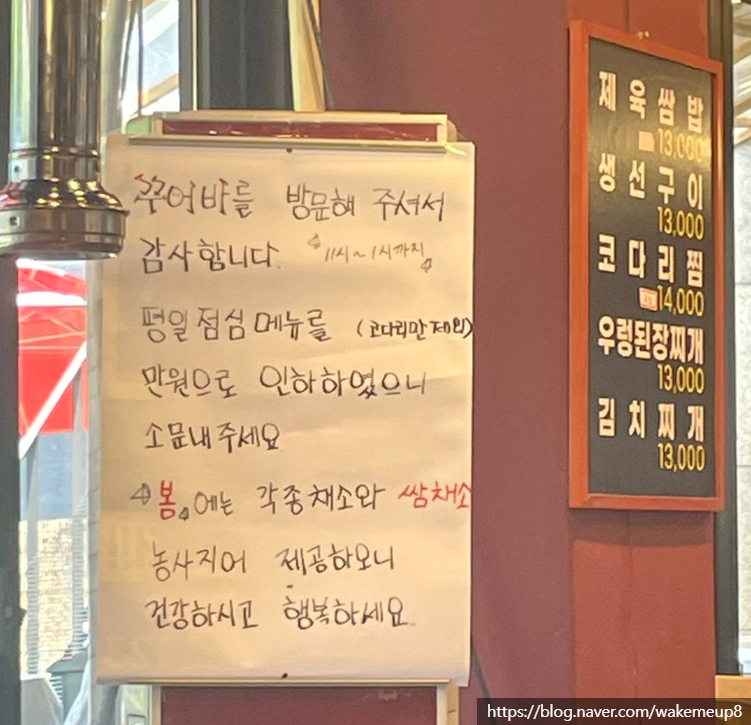 꾸어바를 방문해 주셔서
감사합니다. 11시~1시까지
평일점심메뉴를 (코다리만 제외)
만원으로 인하하였으니
소문내주세요
봄에는 각종채소와 쌈채소
농사지어 제공하오니
건강하시고 행복하세요.
제육쌈밥
13,000
생선구이
13,000
코다리찜
14,000
우렁된장찌개
13,000
김치찌개
13,000
https://blog.naver.com/wakemeup8